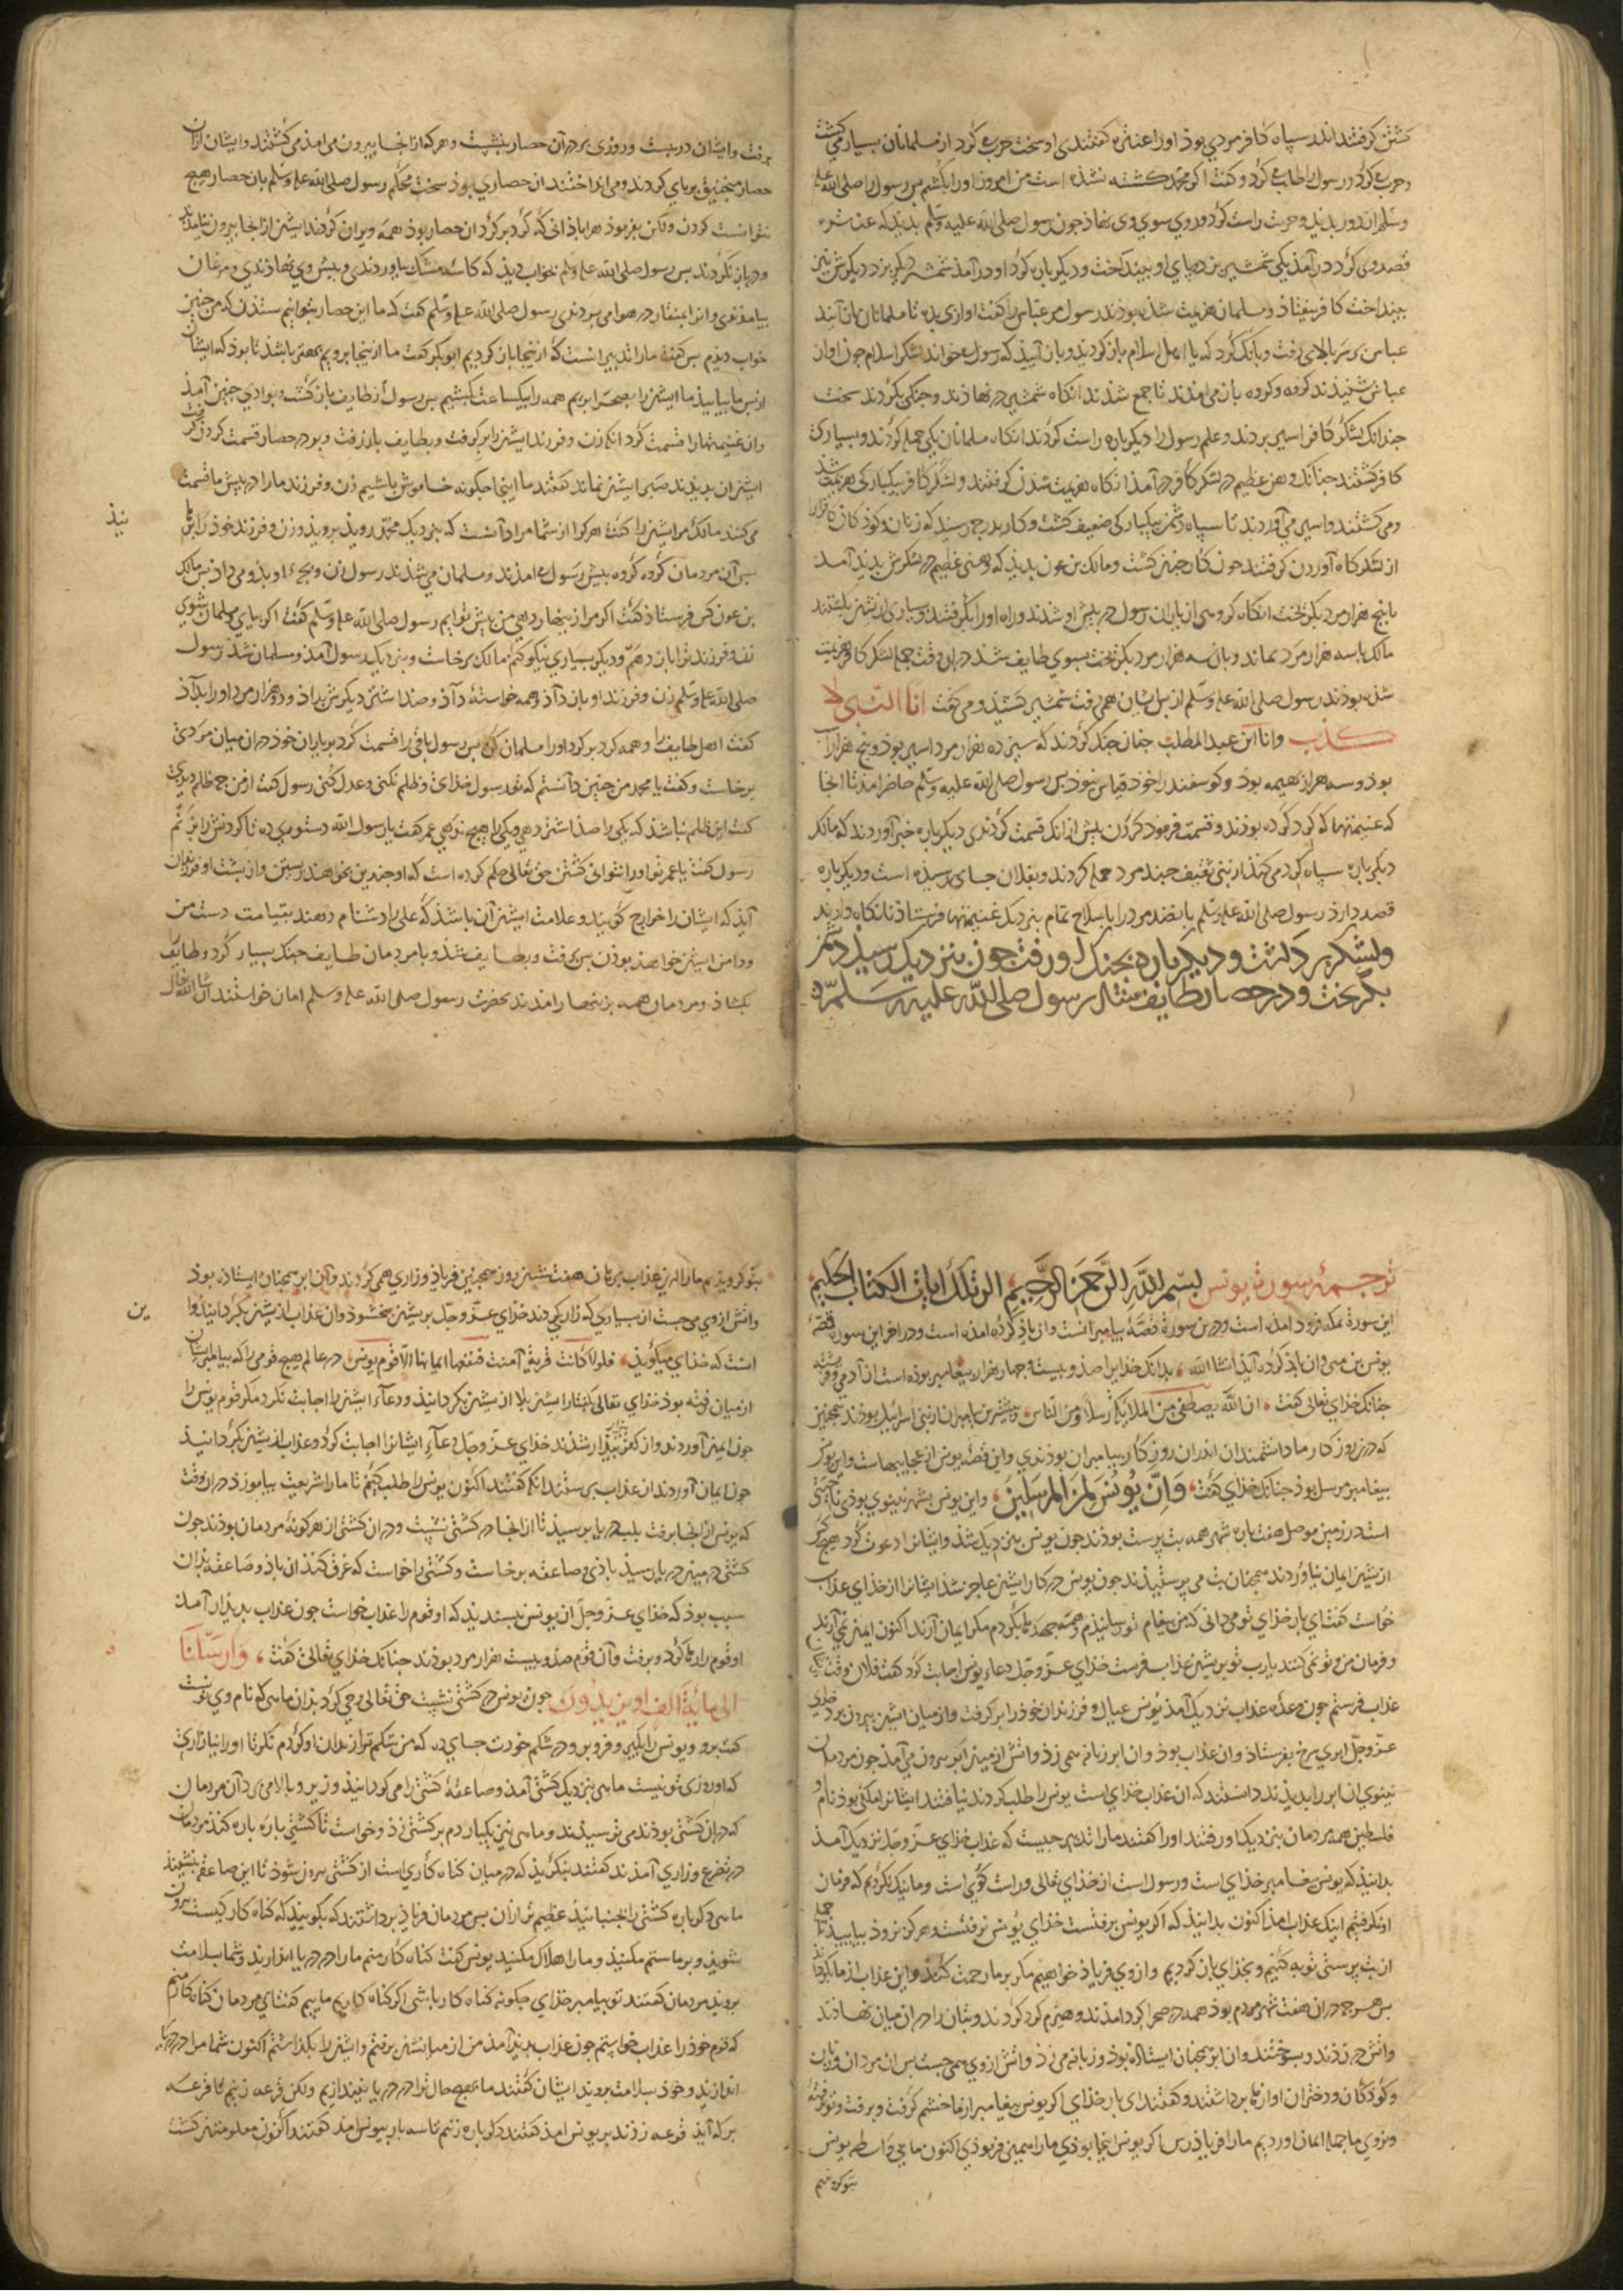 کشتن کرفتند اندر سپاه کافر مردی بوذ اورا عنتره کفتندی او سخت حرب کرد از مسلمانان بسیار می کشت
و حرب کرد و رسول را طلب کرد و کفت اکر محمد کشته نشذه است من امروز اورا بکشم بس رسول را صلی الله علیه
وسلم از دور بدید و حربت راست کرد و روی سوی وی نهاذ جون رسول صلی الله علیه وسلم بدید که عنتره
قصد وی کرد در آمذ یکی شمشیر بزد بپای او بیندخت و دیکر باره کرد او در آمذ شمشیر دیکر بزد دیکرش نیز
بینداخت کافر بیفتاذ و مسلمانان هزیمت شذه بوذند رسول مر عباس را کفت اوازی بده تا مسلمانان باز آیند
عباس بر سر بالای رفت و بانک کرد که یا اهل اسلام باز کردید و باز آیید که رسول می خواند لشکر اسلام جون اواز
عباس شنیدند کروه و کروه باز می امذند تا جمع شذند انکاه شمشیر در نهاذند و جنکی بکردند سخت
جندانک لشکر کافر اسیر بردند و علم رسول را دیکر باره راست کردند انکاه مسلمانان یکی حمله کردند و بسیاری
کافر کشتند جنانک وهن عظیم در لشکر کافر در آمذ انکاه هزیمت شدن کرفتند و لشکر کافر بیکبارکی هزیمت شد
و می کشتند و اسیر می آوردند تا سپاه دشمن بیکبارکی ضعیف کشت و کار بدرجه رسید که زنان و کوذکان کافرانرا
از لشکرکاه آوردن کرفتند جون کار جنین کشت و مالک بن عون بدید که وهنی عظیم در لشکرش بدید آمد
با پنج هزار مرد بکریخت انکاه کروهی از یاران رسول در پیش او شدند و راه او را بکرفتند و بسیاری از یشان بکشتند
مالک با سه هزار مرد بماند و با آن سه هزار مرد بکریخت بسوی طایف شد دران وقت جمله لشکر کافر هزیمت
شذه بوذند رسول صلی الله علیه وسلم از بس ایشان همی رفت شمشیر کشیذه و می کفت انا النبی لا
کذب وانا ابن عبد المطلب جنان جنک کردند که سیزده هزار مرد اسیر بوذ و پنج هزار
بوذ و سه هزار بهیمه بوذ و کوسفند را خود قیاس نبوذ بس رسول صلی الله علیه وسلم حاضر امذ تا انجا
که غنیمتها که کرد کرده بوذند و قسمت فرمود کردن بیش از انک قسمت کردندی دیکر باره خبر آوردند که مالک
دیکر باره سپاه کرد می کند از بنی ثقیف جند مرد حمله کردند و بفلان جای رسیذه است و دیکر باره
قصد دارذ رسول صلی الله علیه وسلم بانصد مرد را با سلاح تمام بنزدیک غنیمتها فرستاذ تا نکاه دارند
ولشکر بر داشت و دیکر باره بجنک او رفت جون بنزدیک رسیذ دشمن
بکریخت و در حصار طایف شد رسول صلی الله علیه وسلم
برفت وایشان در ببست و روزی بر در آن حصار بنشست و هر که از انجا بیرون می امذ می کشتند وایشان ازان
حصار منجنیق بر پای کردند و می انداختند ان حصاری بوذ سخت محکم رسول صلی الله علیه وسلم بان حصار هیج
نتوانست کردن ولکن بفرموذ هر ابادانی که کرد بر کرد ان حصار بوذ همه ویران کردند ایشان از انجا بیرون نیامذند
و در باز نکردند بس رسول صلی الله علیه وسلم بخواب دیذ که کاسه مشک بیاوردندی و بیش وی نهاذندی و مرغان
بیامذندی وانرا بمنقار در هوا می بردندی رسول صلی الله علیه وسلم کفت که ما این حصار نتوانیم ستدن که من جنین
خواب دیدم بس کفت ما را تدبیر انست که از ینجا باز کردیم ابو بکر کفت ما از ینجا برویم بهتر باشد تا بوذ که ایشان
از بس ما بیایند ما ایشانرا بصحرا بریم همه را بیکساعت بکشیم بس رسول از طایف باز کشت و بوادی حنین آمذ
وان غنیمتها را قسمت کرد
نیذ
می کنند مالک مر ایشان را کفت هر کرا از شما مراد آنست که بنزدیک محمد روذ برویذ و زن و فرزند خود را
بس آن مردمان کروه کروه بیش رسول می امذند و مسلمان می شذند رسول زن و بچه او بذو می داذ بس مالک
بن عون کس فرستاذ کفت اکر مرا زینهار دهی من بیش تو ایم رسول صلی الله علیه وسلم کفت اکر بیای و مسلمان شوی
زن و فرزند ترا باز دهم و دیکر بسیاری نیکو کنم مالک برخاست و بنزدیک رسول آمذ و مسلمان شذ رسول
صلی الله علیه وسلم زن و فرزند او باز داذ و همه خواسته داذ و صد اشتر دیکرش بداذ و دو هزار مرد اورا بداذ
کفت اهل طایف را همه کرد بر کرد اورا مسلمان کن بس رسول باقی را قسمت کرد بر یاران خوذ دران میان مردی
برخاست و کفت یا محمد من جنین دانستم که تو رسول خذای و ظلم نکنی و عدل کنی رسول کفت از من جه ظلم دیدی
کفت این ظلم نباشد که یکی را صذ اشتر دهی و یکی را هیج ندهی عمر کفت یا رسول الله دستوری ده تا کردنش را بزنم
رسول کفت یا عمر تو اورا نتوانی کشتن حق تعالی حکم کرده است که او جندین بخواهد زیستن و از بشت او فرزندان
آیذ که ایشان را خوارج کویند و علامت ایشان آن باشد که علی را دشنام دهند بقیامت دست من
و دامن ایشان خواهد بوذن بس برفت و بطایف شذ و با مردمان طایف جنک بسیار کرد و طایف
بکشاذ و مردمان همه بزینهار امذند بحضرت رسول صلی الله علیه وسلم امان خواستند ان شا الله تعالی
ترجمۀ سورت یونس بسم الله الرحمن الرحیم الر تلک ایات الکتاب الحکیم
این سورة بمکه فرود امذه است و درین سورة قصۀ پیامبرانست و از یاذ کرده امذه است و در اخر این سوره قصه
یونس بن متی وان یاذ کرده آیذ انشا الله بدانک خذایرا صذ و بیست و جهار هزار بیغامبر بوذه است از آدمی و فرشته
جنانک خذای تعالی کفت ان الله یصطفی من الملائکة رسلا ومن الناس و بیشترین پیامبران از بنی اسرائیل بوذند همجنین
که در روزکار ما دانشمندان اندران روزکار پیامبران بوذندی و این قصۀ یونس از عجایبهاست و این یونس
بیغامبر مرسل بوذ جنانک خذای کفت وان یونس لمن المرسلین و این یونس بشهر نینوی بوذی ناحیتی
است در زمین موصل هفت باره شهر همه بت پرست بوذند جون یونس بنزدیک شذ و ایشانرا دعوت کرد هیج کس
از یشان ایمان نیاوردند همجنان بت می پرستیذند جون یونس در کار ایشان عاجز شذ ایشانرا از خذای عذاب
خواست کفت ای بار خذای تو می دانی که من بیغام تو رسانیذم و همه جهدها بکردم مکر ایمان آرند اکنون ایمان نمی آرند
و فرمان من و تو نمی کنند یا رب تو بریشان عذاب فرست خذای عز وجل دعاء یونس اجابت کرد کفت فلان وقت
عذاب فرستم جون وعده عذاب نزدیک آمذ یونس عیال و فرزندان خود را بر کرفت و از میان ایشان بیرون برد خذای
عز وجل ابری سرخ بفرستاذ وان عذاب بوذ وان ابر زبانه همی زذ و اتش از میان ابر بیرون می آمذ جون مردمان
نینوی ان ابر را بدیذند دانستند که ان عذاب خذای است یونس را طلب کردند نیافتند ایشانرا ملکی بوذ نام او
فلسطین همه مردمان بنزدیک او رفتند اورا کفتند ما را تدبیر جیست که عذاب خذای عز وجل نزدیک آمذ
بدانیذ که یونس بیغامبر خذای است و رسول است از خذای تعالی و راست کوی است و ما نیک نکردیم که فرمان
او نکرفتیم اینک عذاب امذ اکنون بدانیذ که اکر یونس برفتست خذای یونس نرفتست و هرکز نروذ بیاییذ تا جمله
از بت پرستی توبه کنیم و بخذای باز کردیم و از وی فریاذ خواهیم مکر بر ما رحمت کند و این عذاب از ما بکرداند
بس هرجه دران هفت شهر مردم بوذ همه در صحرا کرد امذند و هیزم کرد کردند و بتان را دران میان نهاذند
و اتش در زذند و بسوختند وان ابر همجنان ایستاذه بوذ و زبانه می زذ و اتش از وی همی جست بس ان مردان و زنان
و کوذکان و دختران اوازها برداشتند و کفتند ای بار خذای اکر یونس بیغامبر از ما خشم کرفت و برفت و تو نرفتۀ
و بروی ما جمله ایمان اوردیم ما را فریاذ رس اکر یونس اینجا بوذی ما را همینی فرموذی اکنون ما بی واسطه یونس
بتو کرویذیم
بتو کرویذیم ما را ازین عذاب برهان هفت شبان روز همجنین فریاذ و زاری همی کردند وان ابر همجنان ایستاذه بوذ
ین
و اتش از وی می جست از بسیاری که زاری کردند خذای عز وجل بریشان ببخشوذ وان عذاب از یشان بکردانیذ و ان
است که خذای میکویذ فلولا کانت قریة آمنت فنفعها ایمانها الا قوم یونس در عالم هیج قومی را که بلا بمیان ایشان
از میان رفته بوذ خذای تعالی کفتار ایشان بلا از یشان نکردانیذ و دعاء ایشان را اجابت نکرد مکر قوم یونس را
جون ایمان آوردند و از کفر بیزار شذند خذای عز وجل دعاء ایشانرا اجابت کرد و عذاب از یشان بکردانیذ
جون ایمان آوردند ازان عذاب برستند انکه کفتند اکنون یونس را طلب کنیم تا ما را شریعت بیاموزد دران وقت
که یونس از انجا برفت بلب دریا برسیذ تا از انجا در کشتی نشست و دران کشتی از هر کونه مردمان بوذند جون
کشتی در میان دریا رسیذ باذی و صاعقه برخاست و کشتی را خواست که غرق کند ان باذ و صاعقه بدان
سبب بوذ که خذای عز وجل از یونس نپسندیذ که او قوم را عذاب خواست جون عذاب بدیذار آمذ
او قوم را رها کرد و برفت وآن قوم صذ و بیست هزار مرد بوذند جنانک خذای تعالی کفت وارسلنا
الی مایة الف او یزیدون جون یونس در کشتی نشست حق تعالی وحی کرد بذان ماهی که نام وی نون است
کفت برو و یونس را بکیر و فرو بر و در شکم خودت جای ده که من شکم ترا زندان او کردم نکر تا اورا نیازاری
که او روزی تو نیست ماهی بنزدیک کشتی آمذ و صاعقۀ کشتی را می کردانیذ و زیر و بالا می برد آن مردمان
که دران کشتی بوذند می ترسیذند و ماهی نیز بیکبار دم بر کشتی زذ و خواست تا کشتی پاره پاره کنذ مردمان
در تضرع و زاری آمذند کفتند بنکریذ که در میان کناه کاری است از کشتی بیرون شوذ تا این صاعقه بنشیند
ماهی دکر باره کشتی را بجنبانیذ عظیم تر ازان بس مردمان فریاذ برداشتند که بکوییذ که کناه کار کیست بیرون
شویذ و بر ما ستم مکنیذ و ما را هلاک مکنیذ یونس کفت کناه کار منم مارا در دریا اندازیذ و شما بسلامت
برویذ مردمان کفتند تو پیامبر خذای جکونه کناه کار باشی اکر کناه کاریم ماییم کفت ای مردمان کناه کار منم
که قوم خود را عذاب خواستم جون عذاب بدید آمذ من از میانشان برفتم و ایشان را بکذاشتم اکنون شما مرا در دریا
اندازیذ و خود بسلامت برویذ ایشان کفتند ما بهیج حال ترا در دریا نیندازیم ولکن قرعه زنیم تا قرعه
بر که آیذ قرعه زذند بر یونس امذ کفتند دکر باره زنیم تا سه بار بیونس امذ کفتند اکنون معلوم شد